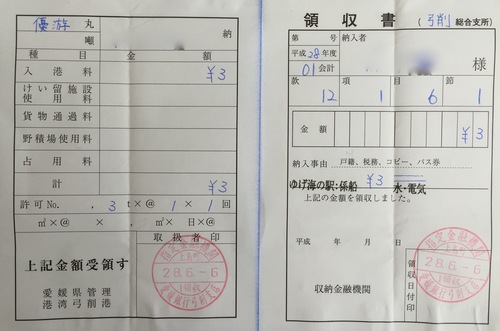 優游 丸
噸
納
種 目 金 額
入港料 ¥3
けい留施設
使用料
貨物通過料
野積場使用料
占用料
計 ¥3
許可No. , 3 t×@ 1 × 1 回
㎡×@ × , ㎡× 日×@
取扱者印
上記金額受領す
愛媛県管理
港湾弓削港
28.6.-6
領収書 (弓削 総合支所)
第 号 納入者
平成28年度
01会計
様
款 項 目 節
12 1 6 1
金額 ¥3
納入事由 戸籍、税務、コピー、バス券
ゆげ海の駅:係船 ¥3 水・電気
上記の金額を領収しました。
平成 年 月 日
収納金融機関
領収日付印
28.6.-6